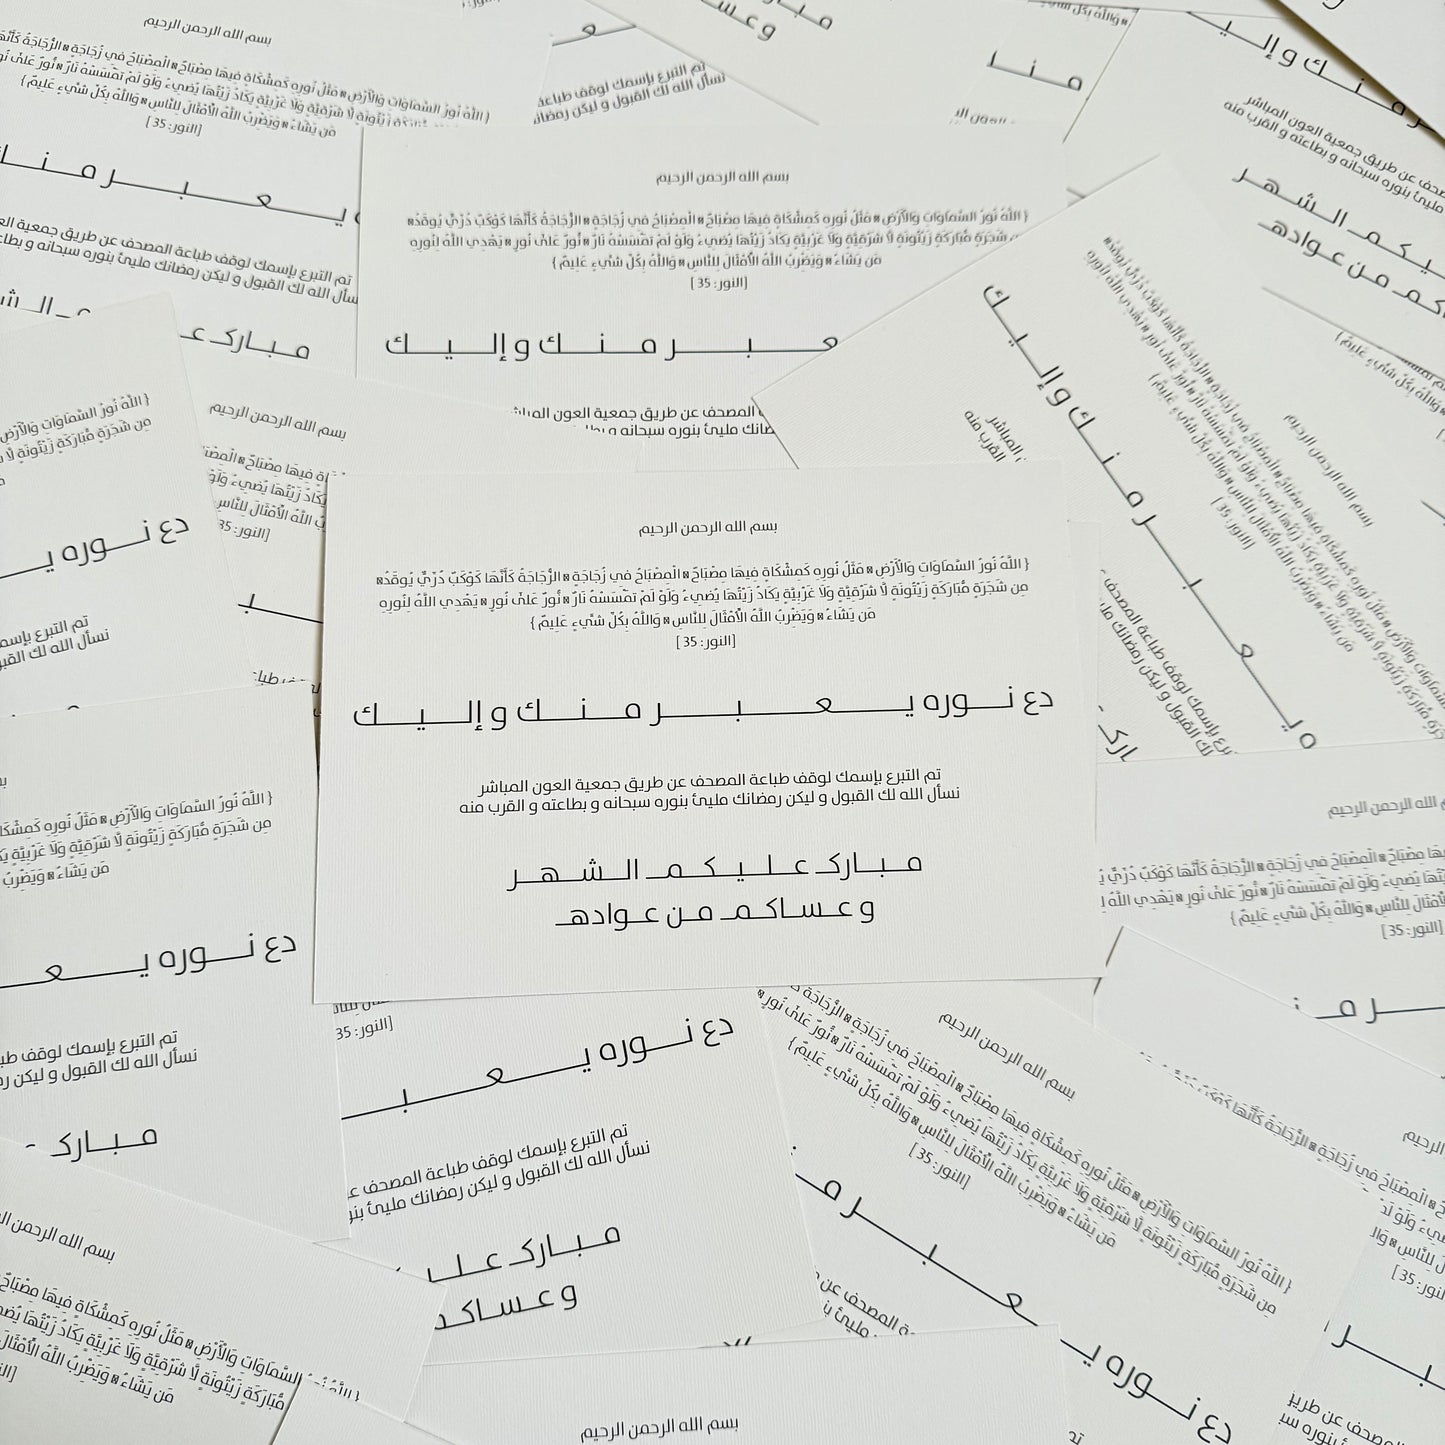 بسم الله الرحمن الرحيم
{ اللَّهُ نُورُ السَّمَاوَاتِ وَالْأَرْضِ ۞ مَثَلُ نُورِهِ كَمِشْكَاةٍ فِيهَا مِصْبَاحٌ ۞ الْمِصْبَاحُ فِي زُجَاجَةٍ ۞ الزُّجَاجَةُ كَأَنَّهَا كَوْكَبٌ دُرِّيٌّ يُوقَدُ ۞
مِن شَجَرَةٍ مُّبَارَكَةٍ زَيْتُونَةٍ لَّا شَرْقِيَّةٍ وَلَا غَرْبِيَّةٍ يَكَادُ زَيْتُهَا يُضِيءُ وَلَوْ لَمْ تَمْسَسْهُ نَارٌ ۞ نُّورٌ عَلَىٰ نُورٍ ۞ يَهْدِي اللَّهُ لِنُورِهِ
مَن يَشَاءُ ۞ وَيَضْرِبُ اللَّهُ الْأَمْثَالَ لِلنَّاسِ ۞ وَاللَّهُ بِكُلِّ شَيْءٍ عَلِيمٌ }
[النور: 35]
دع نـوره يـعـبـر مـنـك و إلـيـك
تم التبرع بإسمك لوقف طباعة المصحف عن طريق جمعية العون المباشر
نسأل الله لك القبول و ليكن رمضانك مليئ بنوره سبحانه و بطاعته و القرب منه
مـبـارك عـلـيـكـم الـشـهـر
و عـسـاكـم مـن عـواده